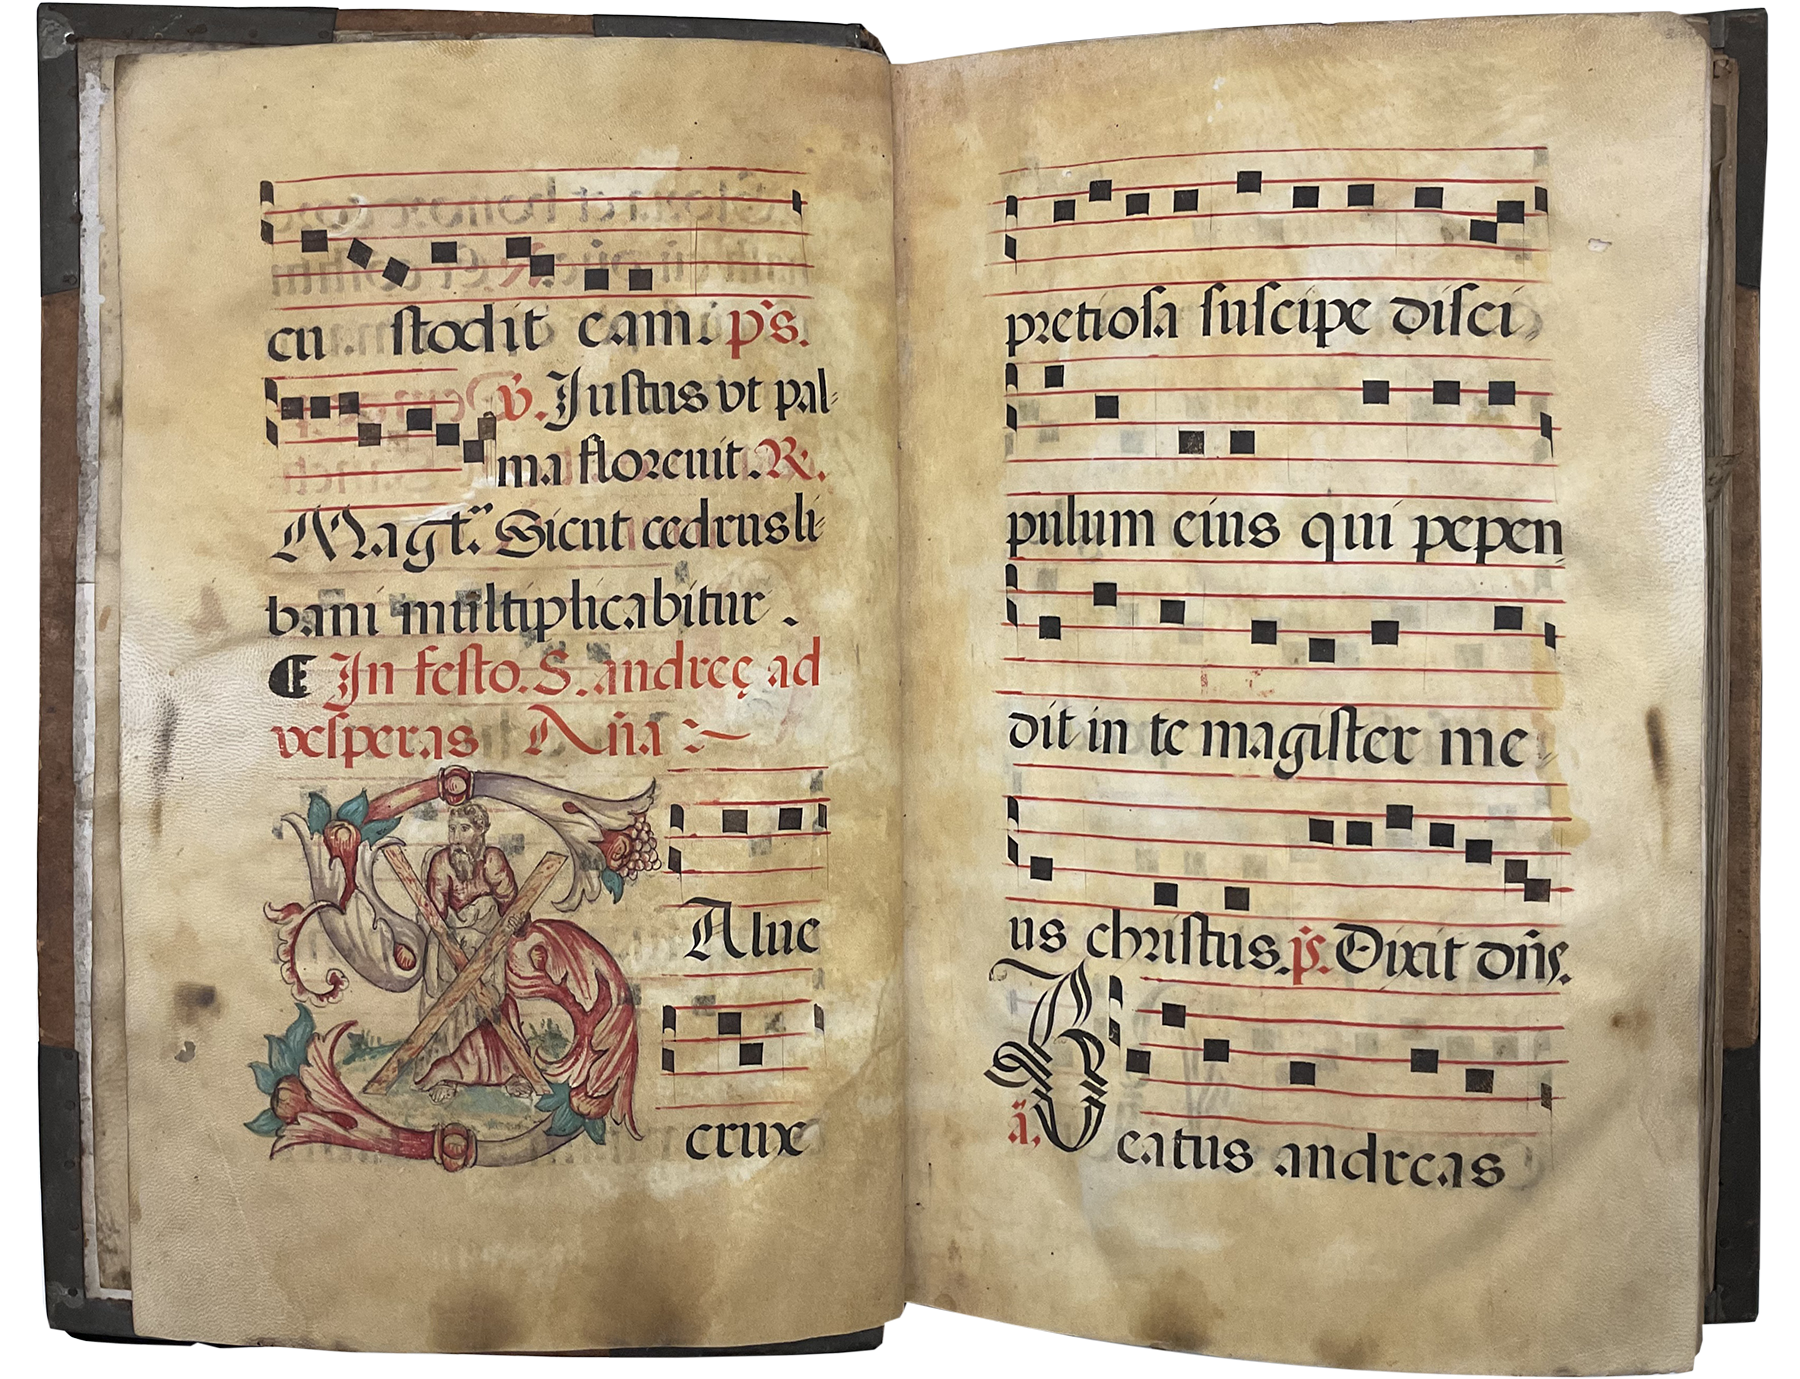 cu stodit eam. p̄s.
v̄. Justus vt pal-
ma florenit. R.
Magt. Sicut cedrus li-
bani multiplicabitur.
In festo. S. andreę ad
vesperas Añа
Alue
crux
pretiosa suscipe disci
pulum eius qui pepen
dit in te magister me
us christus. p̄s. Dixit dñs.
ā. B eatus andreas